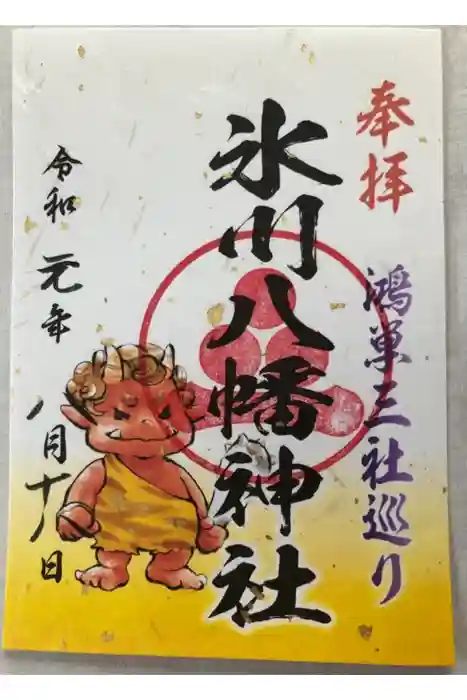 奉拝
鴻巣三社巡り
氷川八幡神社
令和元年
八月十八日